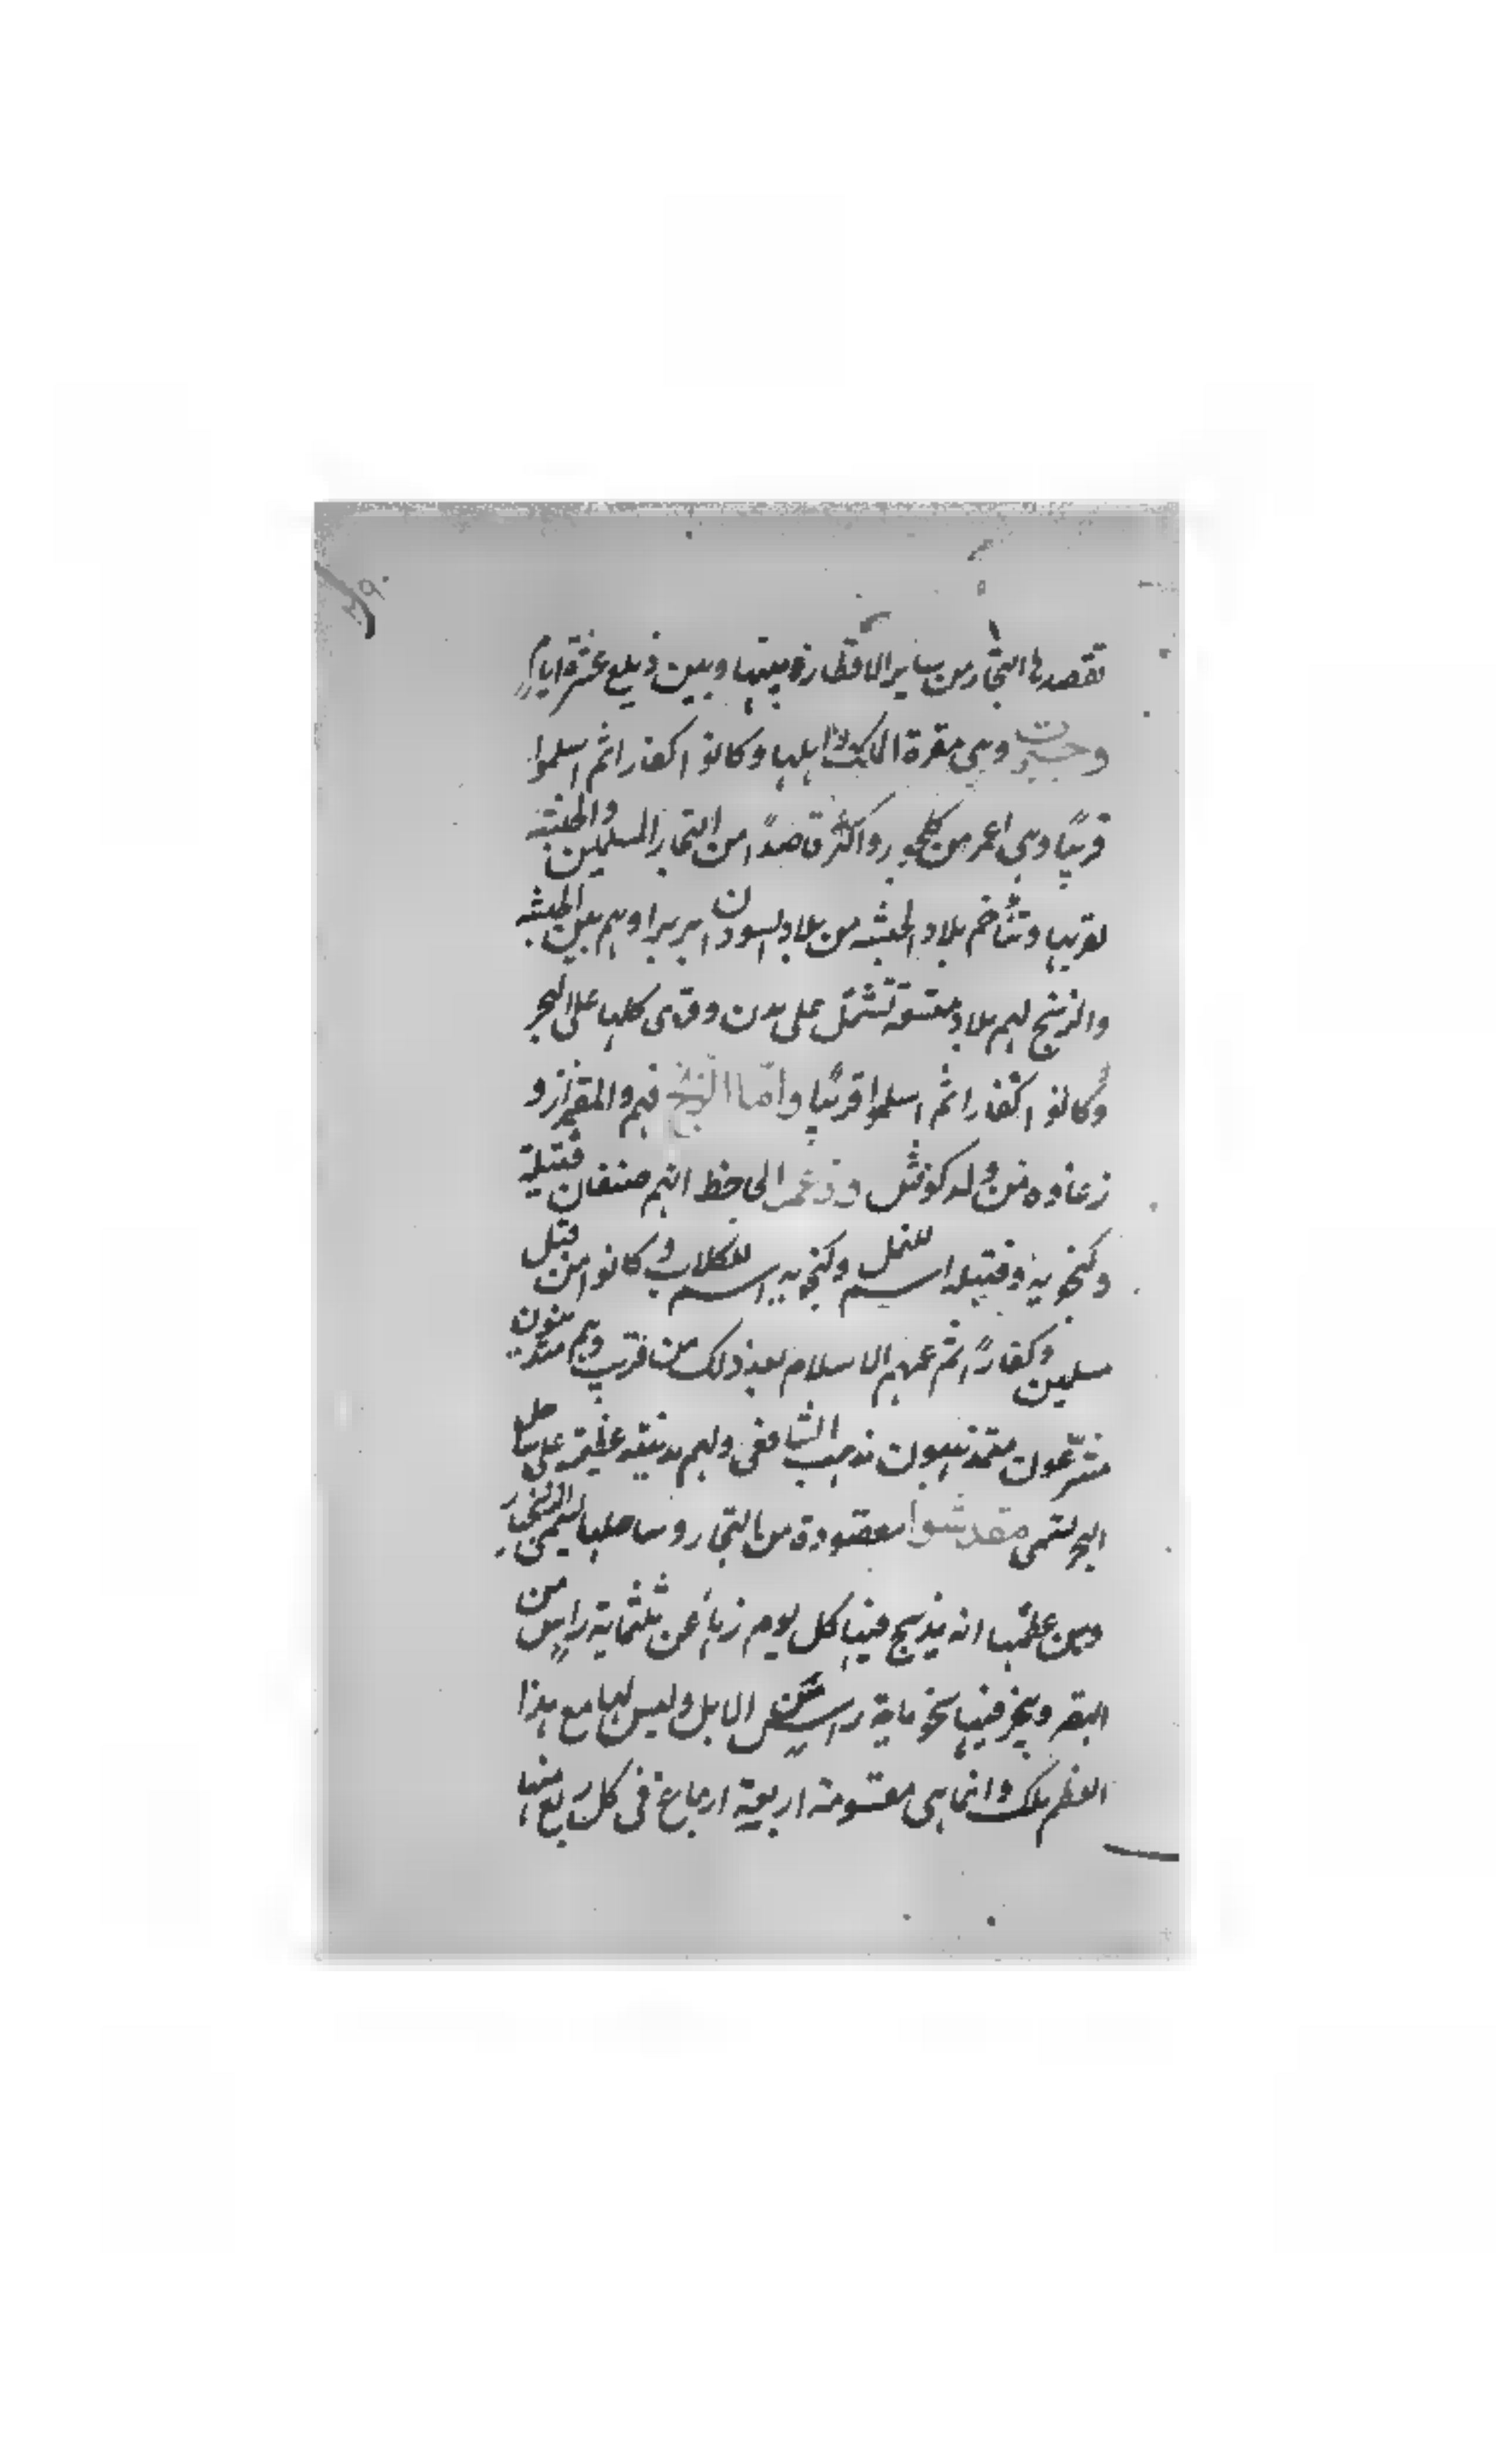 تقصدها التجار من ساير الاقطار وبينها وبين زيلع عشرة ايام
وهي مقرة الملك اهلها وكانوا كفارا ثم اسلموا
قريبًا وهي اعمر من كلجور واكثر قاصدًا من التجار المسلمين والحبشه
لقربها وتتاخم بلاد الحبشه من بلاد السودان البربرا وهم بين الحبشه
والزنج لهم بلاد متسعة تشتمل على مدن وقرى كلها على البحر
وكانوا كفارا ثم اسلموا قريبًا وامّا الزنج فهم والمقزازو
زغاوه من ولد كوش وزعم الجاحظ انهم صنفان قنبلة
وكنجويه وقنبله اسم للنمل وكنجويه اسم للكلاب وكانوا من قبل
مسلمين وكفارًا ثم عمهم الاسلام بعد ذلك من قريب وهم متدينون
متشرّعون متمذهبون مذهب الشافعى ولهم مدينه عظيمة على ساحل
البحر تسمى مقدشوا مقصودة من التجار وساحلها يسمى الزنجبار
ومن عظمها انه يذبح فيها كل يوم زيادة عن ثلثماية راس من
البقر وينحر فيها نحو ماية راس من الابل وليس لها مع هذا
العظم ملك وانما هى مقسومة اربعة ارباع فى كل ربع منها